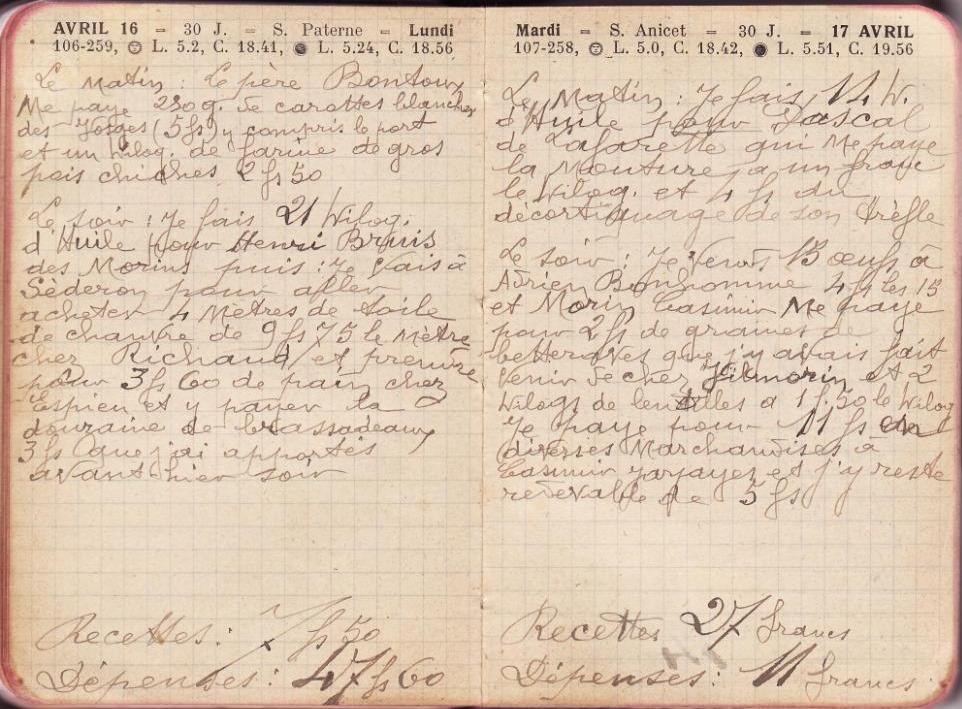 AVRIL 16 — 30 J. — S. Paterne — Lundi
106-259, L. 5.2, C. 18.41, L. 5.24, C. 18.56
Le Matin : Le père Bontoux
Me paye 250 g. de carottes blanches
des Vosges (5 fs) y compris le port
et un Kilog. de farine de gros
pois chiches 2 fs 50
Le soir : Je fais 21 Kilog.
d'Huile pour Henri Bruis
des Morins puis : Je Vais à
Séderon pour aller
acheter 4 Mètres de toile
de chanvre de 9 fs 75 le Mètre
chez Richaud et prendre
pour 3 fs 60 de pain chez
Espieu et y payer la
douzaine de brassadeaux
3 fs que j'ai apportés
avant-hier soir
Recettes : 7 fs 50
Dépenses : 47 fs 60
Mardi — S. Anicet — 30 J. — 17 AVRIL
107-258, L. 5.0, C. 18.42, L. 5.51, C. 19.56
Le Matin : Je fais 14 K.
d'Huile pour Pascal
de Lafarette qui Me paye
la Mouture a un franc
le Kilog. et 4 fs du
décortiquage de son trèfle
Le soir : Je Vends 13 œufs à
Adrien Bonhomme 4 fs les 15
et Morin Casimir Me paye
pour 2 fs de graines de
betteraves que j'y avais fait
Venir de chez Vilmorin et 2
Kilogs de lentilles a 1 f. 50 le Kilog
Je paye pour 11 fs en
diverses Marchandises à
Casimir Jarjayes et j'y reste
redevable de 5 fs
Recettes 27 francs
Dépenses : 11 francs